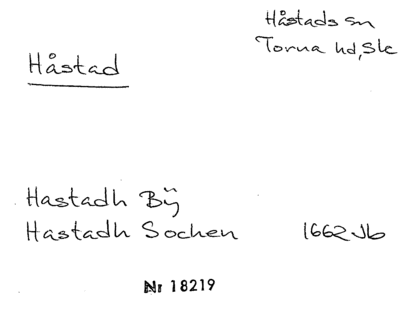 Håstads sn
Torna hd, Sk
Håstad
Hastadh Bÿ
Hastadh Sochen 1662 Jb
Nr 18219